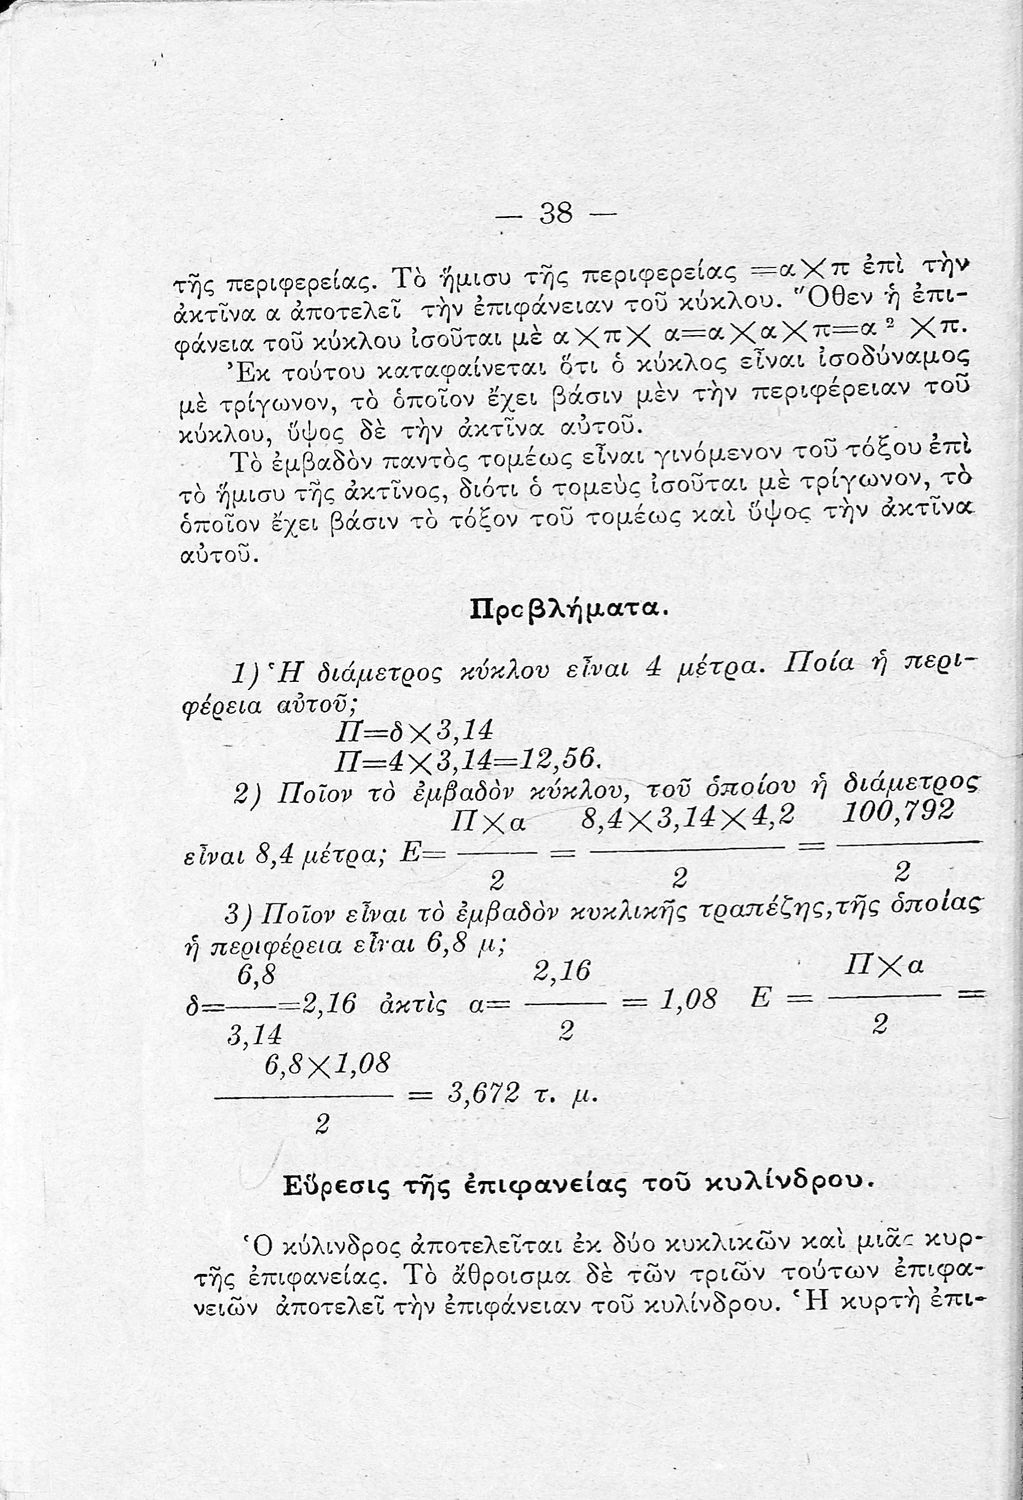 — 38 —
τῆς περιφερείας. Τὸ ἥμισυ τῆς περιφερείας =α╳π ἐπὶ τὴν
ἀκτῖνα α ἀποτελεῖ τὴν ἐπιφάνειαν τοῦ κύκλου. Ὅθεν ἡ ἐπι-
φάνεια τοῦ κύκλου ἰσοῦται μὲ α╳π╳ α=α╳α╳π=α ² ╳π.
Ἐκ τούτου καταφαίνεται ὅτι ὁ κύκλος εἶναι ἰσοδύναμος
μὲ τρίγωνον, τὸ ὁποῖον ἔχει βάσιν μὲν τὴν περιφέρειαν τοῦ
κύκλου, ὕψος δὲ τὴν ἀκτῖνα αὐτοῦ.
Τὸ ἐμβαδὸν παντὸς τομέως εἶναι γινόμενον τοῦ τόξου ἐπὶ
τὸ ἥμισυ τῆς ἀκτῖνος, διότι ὁ τομεὺς ἰσοῦται μὲ τρίγωνον, τὸ
ὁποῖον ἔχει βάσιν τὸ τόξον τοῦ τομέως καὶ ὕψος τὴν ἀκτῖνα
αὐτοῦ.
Προβλήματα.
1) Ἡ διάμετρος κύκλου εἶναι 4 μέτρα. Ποία ἡ περι-
φέρεια αὐτοῦ;
Π=δ╳3,14
Π=4╳3,14=12,56.
2) Ποῖον τὸ ἐμβαδὸν κύκλου, τοῦ ὁποίου ἡ διάμετρος
Π╳α 8,4╳3,14╳4,2 100,792
εἶναι 8,4 μέτρα; Ε= ——— = ——— = ———
2 2 2
3) Ποῖον εἶναι τὸ ἐμβαδὸν κυκλικῆς τραπέζης, τῆς ὁποίας
ἡ περιφέρεια εἶναι 6,8 μ;
6,8 2,16 Π╳α
δ=——=2,16 ἀκτὶς α= ——— = 1,08 Ε = ——— =
3,14 2 2
6,8╳1,08
——— = 3,672 τ. μ.
2
Εὕρεσις τῆς ἐπιφανείας τοῦ κυλίνδρου.
Ὁ κύλινδρος ἀποτελεῖται ἐκ δύο κυκλικῶν καὶ μιᾶς κυρ-
τῆς ἐπιφανείας. Τὸ ἄθροισμα δὲ τῶν τριῶν τούτων ἐπιφα-
νειῶν ἀποτελεῖ τὴν ἐπιφάνειαν τοῦ κυλίνδρου. Ἡ κυρτὴ ἐπι-